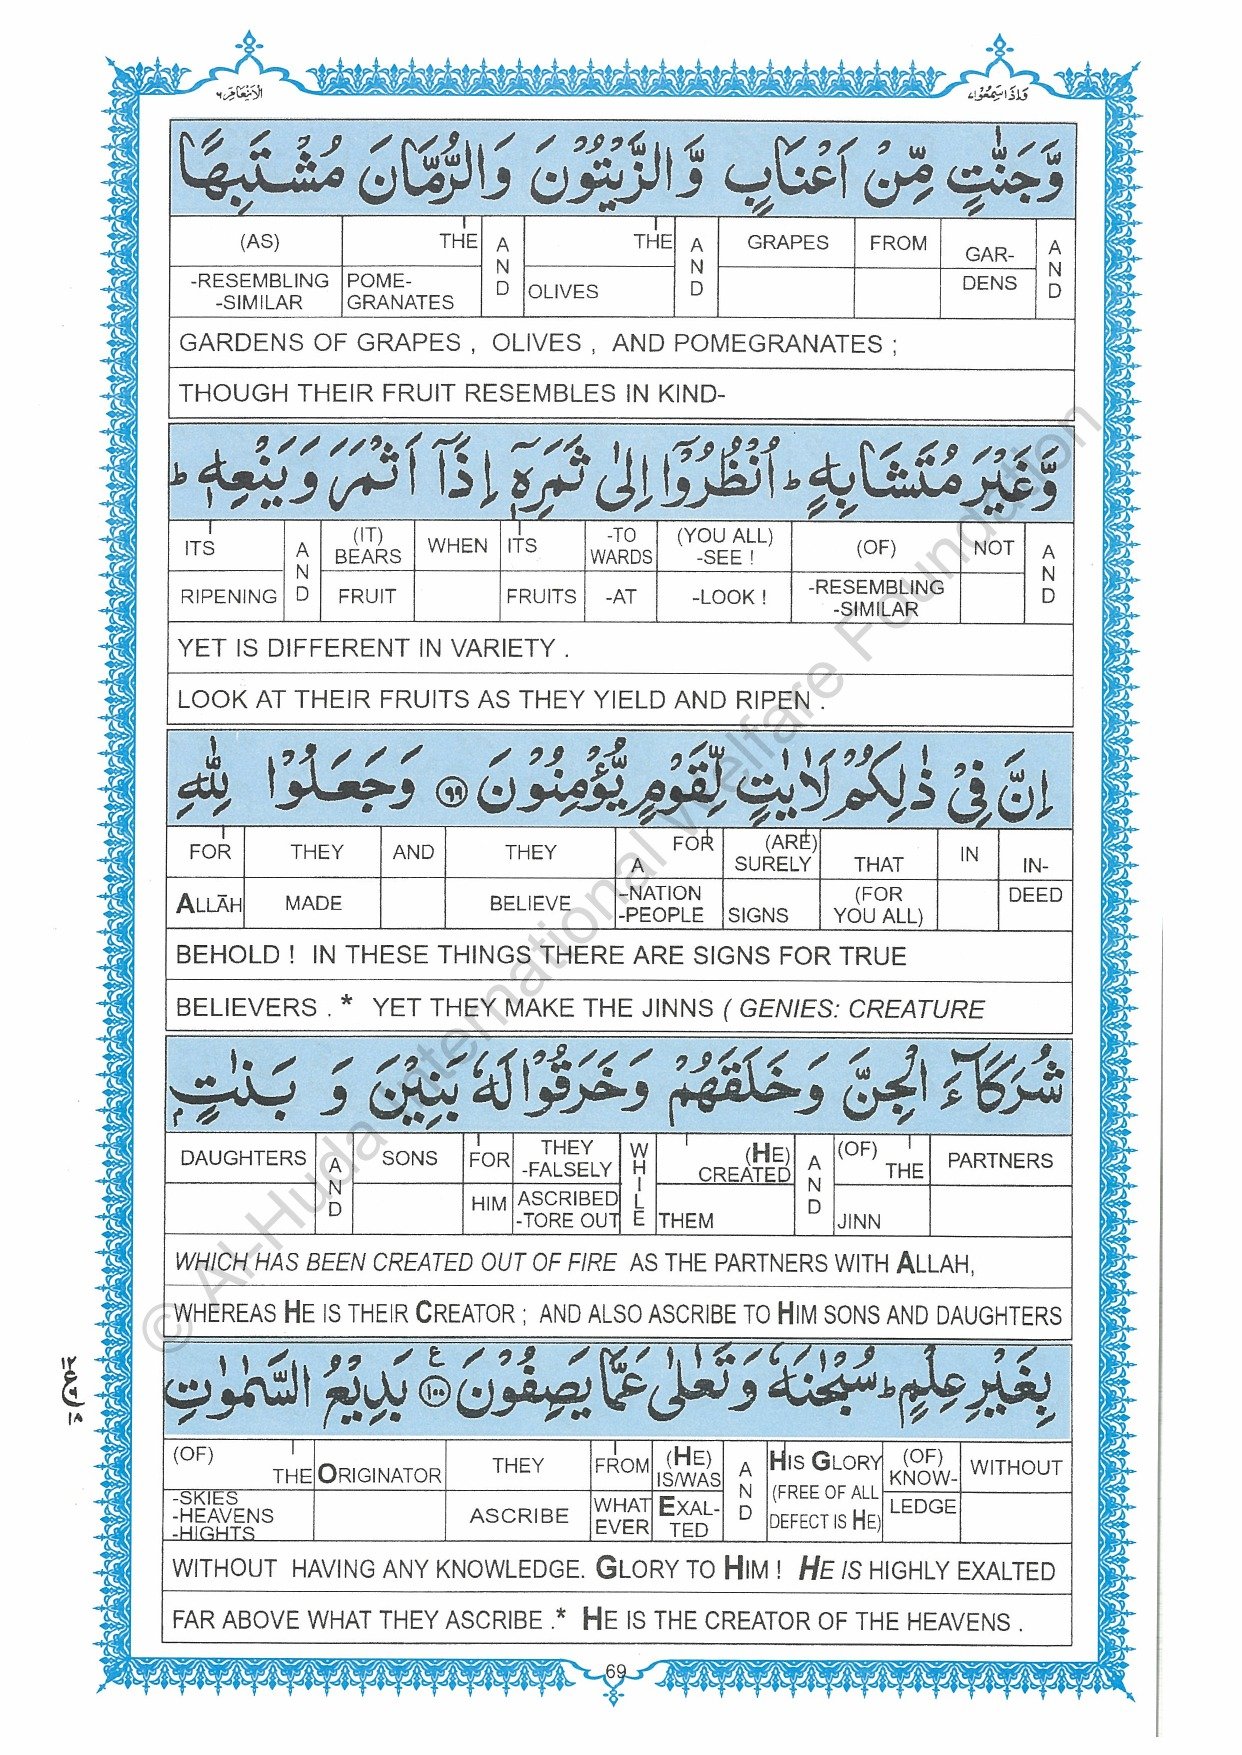 الانعام ٦
واذا سمعوا ٧
وَّجَنّٰتٍ مِّنْ اَعْنَابٍ وَّالزَّيْتُوْنَ وَالرُّمَّانَ مُشْتَبِهًا
(AS) THE A N D THE A N D GRAPES FROM GAR- A N D
-RESEMBLING -SIMILAR POME- GRANATES OLIVES DENS
GARDENS OF GRAPES , OLIVES , AND POMEGRANATES ;
THOUGH THEIR FRUIT RESEMBLES IN KIND-
وَّغَيْرَ مُتَشَابِهٍ ؕ اُنْظُرُوْۤا اِلٰى ثَمَرِهٖۤ اِذَاۤ اَثْمَرَ وَيَنْعِهٖ ؕ
ITS A N D (IT) BEARS WHEN ITS -TO WARDS (YOU ALL) -SEE ! (OF) NOT A N D
RIPENING FRUIT FRUITS -AT -LOOK ! -RESEMBLING -SIMILAR
YET IS DIFFERENT IN VARIETY .
LOOK AT THEIR FRUITS AS THEY YIELD AND RIPEN .
اِنَّ فِيْ ذٰلِكُمْ لَاٰيٰتٍ لِّقَوْمٍ يُّؤْمِنُوْنَ ۹۹ وَجَعَلُوْا لِلّٰهِ
FOR THEY AND THEY A FOR (ARE) SURELY THAT IN IN-
ALLĀH MADE BELIEVE -NATION -PEOPLE SIGNS (FOR YOU ALL) DEED
BEHOLD ! IN THESE THINGS THERE ARE SIGNS FOR TRUE
BELIEVERS . * YET THEY MAKE THE JINNS ( GENIES: CREATURE
شُرَكَآءَ الْجِنَّ وَخَلَقَهُمْ وَخَرَقُوْا لَهٗ بَنِيْنَ وَ بَنٰتٍۭ
DAUGHTERS A N D SONS FOR THEY -FALSELY W H I L E (HE) CREATED A N D (OF) THE PARTNERS
HIM ASCRIBED -TORE OUT THEM JINN
WHICH HAS BEEN CREATED OUT OF FIRE AS THE PARTNERS WITH ALLAH,
WHEREAS HE IS THEIR CREATOR ; AND ALSO ASCRIBE TO HIM SONS AND DAUGHTERS
بِغَيْرِ عِلْمٍ ؕ سُبْحٰنَهٗ وَتَعٰلٰى عَمَّا يَصِفُوْنَ ۱۰۰ بَدِيْعُ السَّمٰوٰتِ
(OF) THE ORIGINATOR THEY FROM (HE) IS/WAS A N D HIS GLORY (OF) KNOW- WITHOUT
-SKIES -HEAVENS -HIGHTS ASCRIBE WHAT EVER EXAL- TED (FREE OF ALL DEFECT IS HE) LEDGE
WITHOUT HAVING ANY KNOWLEDGE. GLORY TO HIM ! HE IS HIGHLY EXALTED
FAR ABOVE WHAT THEY ASCRIBE .* HE IS THE CREATOR OF THE HEAVENS .
69
© Al-Huda International Welfare Foundation